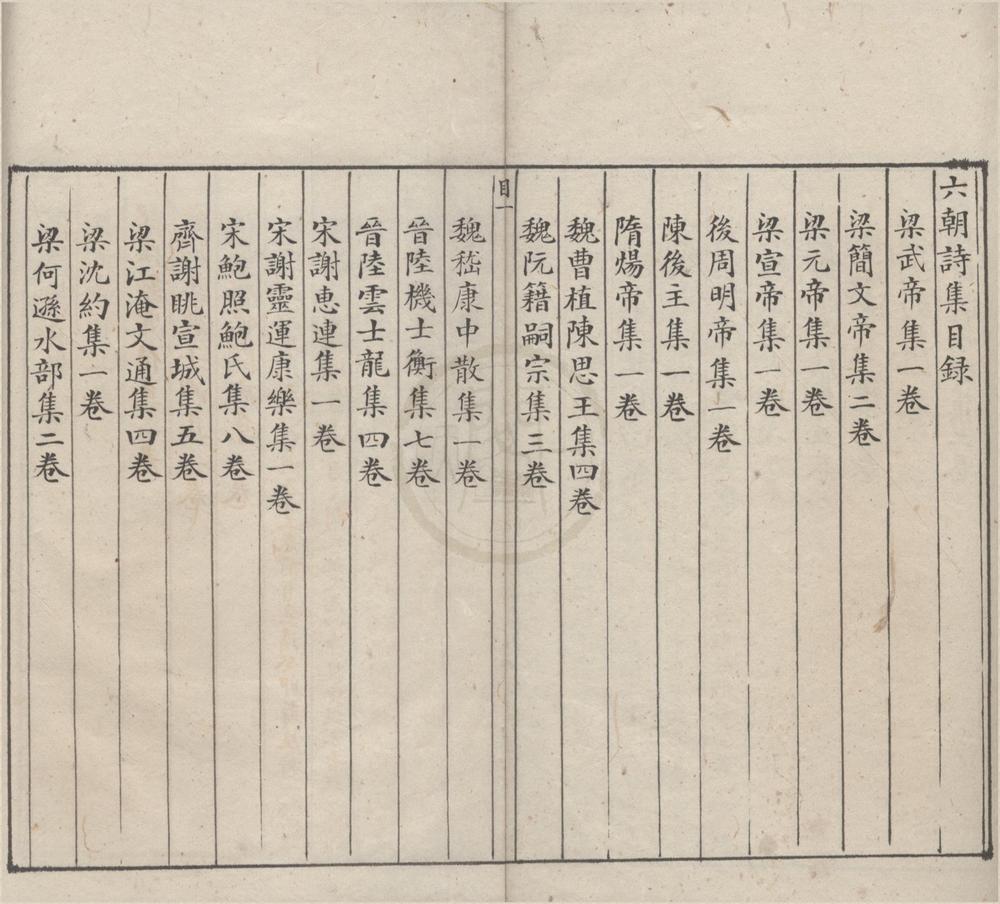 六朝詩集目録
梁武帝集一卷
梁簡文帝集二卷
梁元帝集一卷
梁宣帝集一卷
後周明帝集一卷
陳後主集一卷
隋煬帝集一卷
魏曹植陳思王集四卷
魏阮籍嗣宗集三卷
目一
魏嵇康中散集一卷
晉陸機士衡集七卷
晉陸雲士龍集四卷
宋謝惠連集一卷
宋謝靈運康樂集一卷
宋鮑照鮑氏集八卷
齊謝眺宣城集五卷
梁江淹文通集四卷
梁沈約集一卷
梁何遜水部集二卷